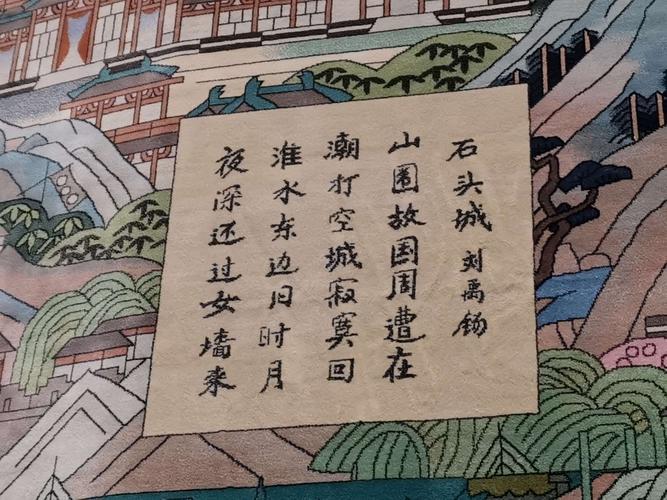 石头城 刘禹锡
山围故国周遭在
潮打空城寂寞回
淮水东边旧时月
夜深还过女墙来